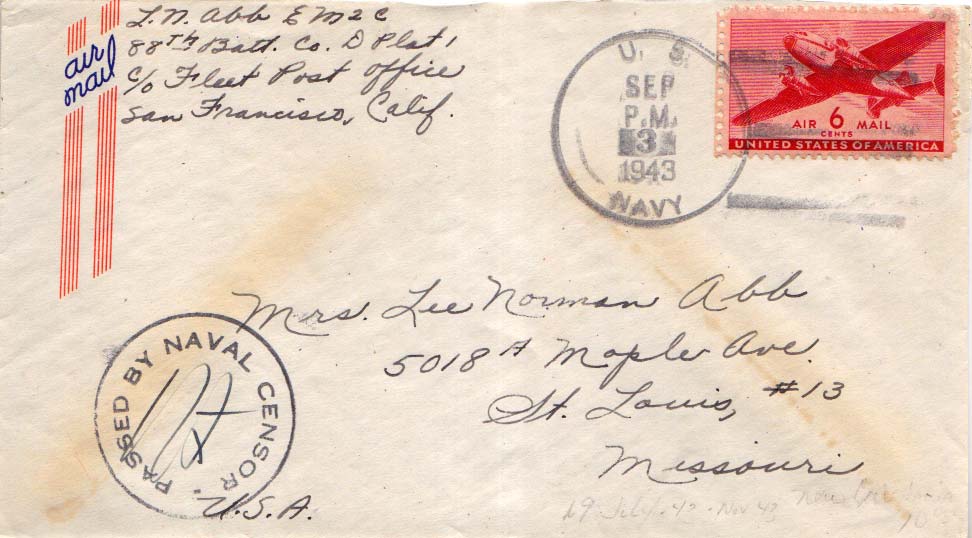 L. N. Abb E M 2 C
88th Batt. Co. D Plat 1
c/o Fleet Post Office
San Francisco, Calif.
air
mail
U. S.
SEP
P.M.
3
1943
NAVY
AIR 6 MAIL
CENTS
UNITED STATES OF AMERICA
Mrs. Lee Norman Abb
5018 A Maple Ave.
St. Louis, #13
Missouri
PASSED BY NAVAL CENSOR.
U.S.A.